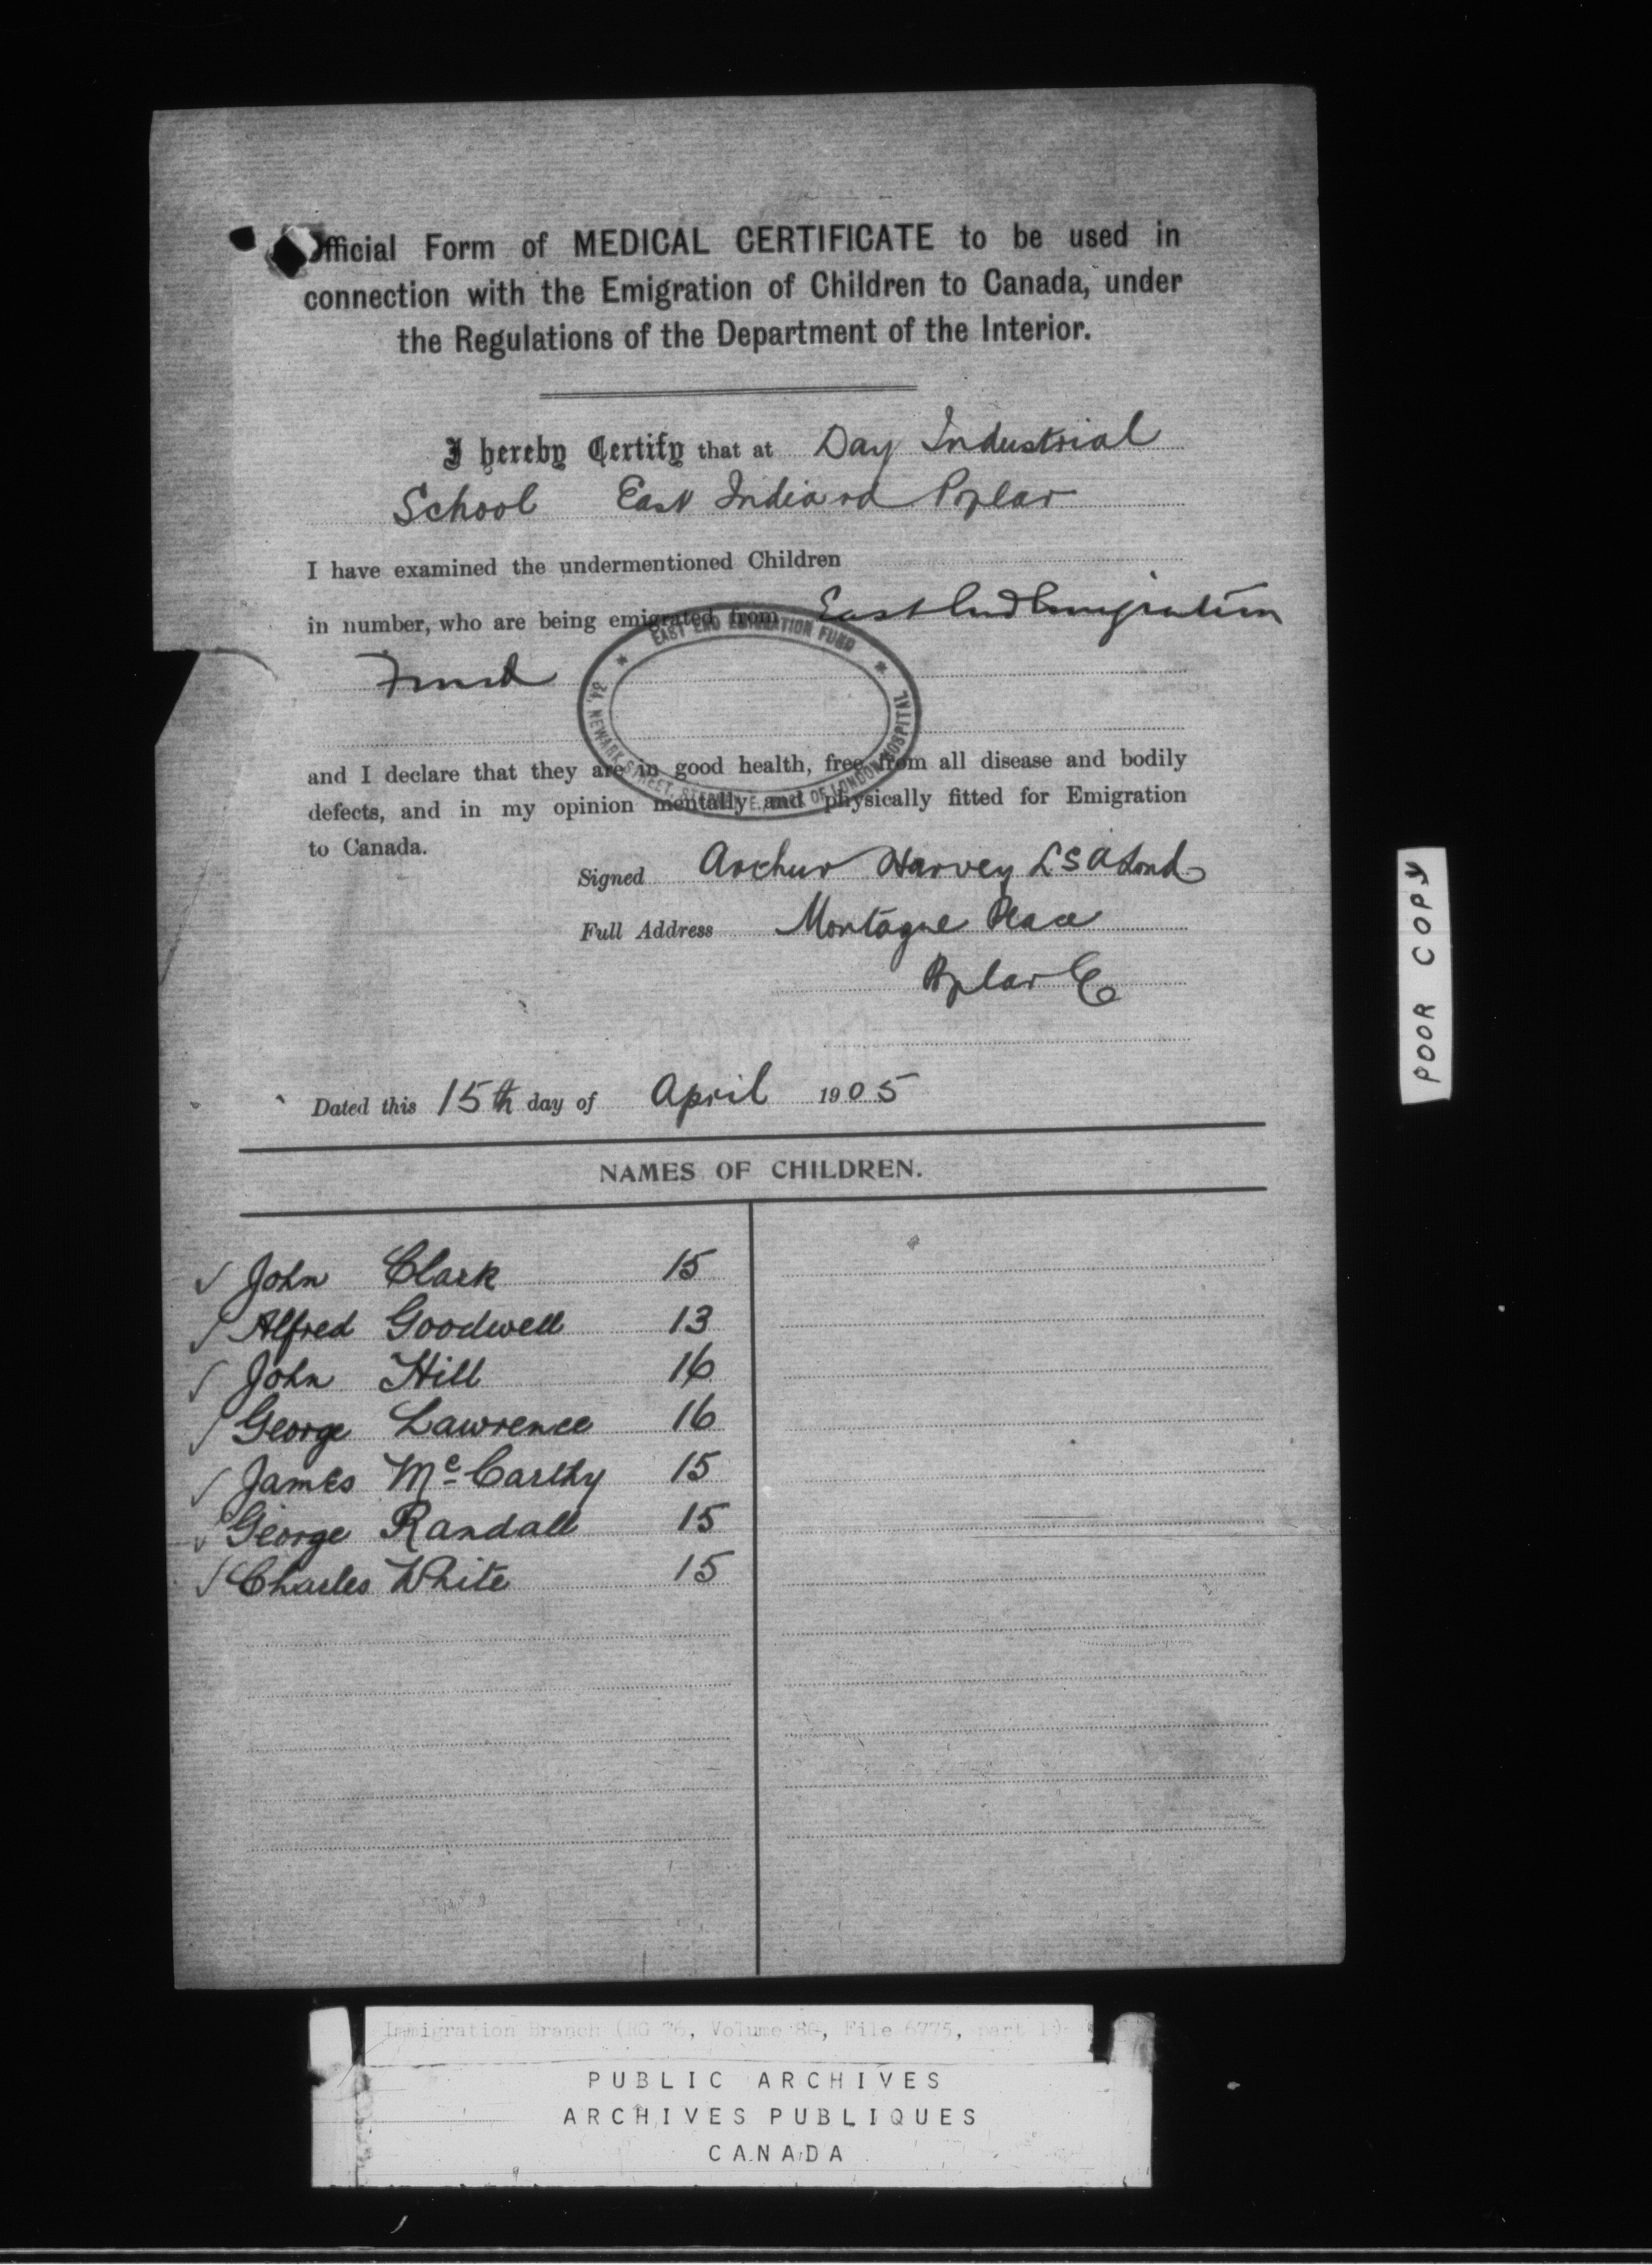 Official Form of MEDICAL CERTIFICATE to be used in
connection with the Emigration of Children to Canada, under
the Regulations of the Department of the Interior.
I hereby Certify that at Day Industrial
School East India rd Poplar
I have examined the undermentioned Children
in number, who are being emigrated from East End Emigration
Fund
EAST END EMIGRATION FUND
24, NEWARK STREET, STEPNEY, E. BACK OF LONDON HOSPITAL
and I declare that they are in good health, free from all disease and bodily
defects, and in my opinion mentally and physically fitted for Emigration
to Canada.
Signed Arthur Harvey LSA Lond
Full Address Montague Place
Poplar E
Dated this 15th day of April 1905
NAMES OF CHILDREN.
✓ John Clark 15
✓ Alfred Goodwell 13
✓ John Hill 16
✓ George Lawrence 16
✓ James Mc Carthy 15
✓ George Randall 15
✓ Charles White 15
POOR COPY
Immigration Branch (RG 76, Volume 80, File 6775, part 1)
PUBLIC ARCHIVES
ARCHIVES PUBLIQUES
CANADA